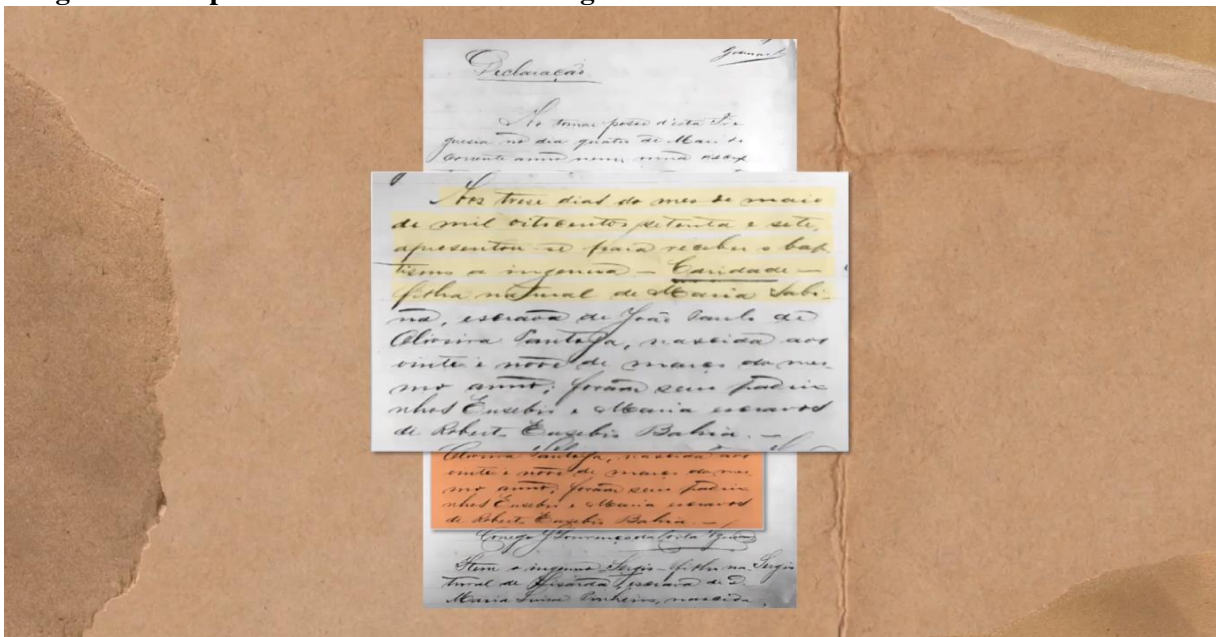 Declaração
Ao tomar posse d'esta Fre
guesia no dia quatro de Maio do
corrente anno nem uma
Aos trese dias do mes de maio
de mil oitocentos setenta e sete,
apresentou-se para receber o bap
tismo a ingenua – Caridade –
filha natural de Maria Sabi-
na, escrava de João Paulo de
Oliveira Pantoja, nascida aos
vinte e nove de março do mes-
mo anno; foram seus padri
nhos Eusebio e Maria escravos
de Roberto Eusebio Bahia. –
Oliveira Pantoja, nascida aos
vinte e nove de março do mes-
mo anno; foram seus padri
nhos Eusebio e Maria escravos
de Roberto Eusebio Bahia. –
Conego Lourenço da Costa
Item o ingenuo Sergio – filho na Sergio
tural de escrava de D.
Maria Luisa Pinheiro, nascido